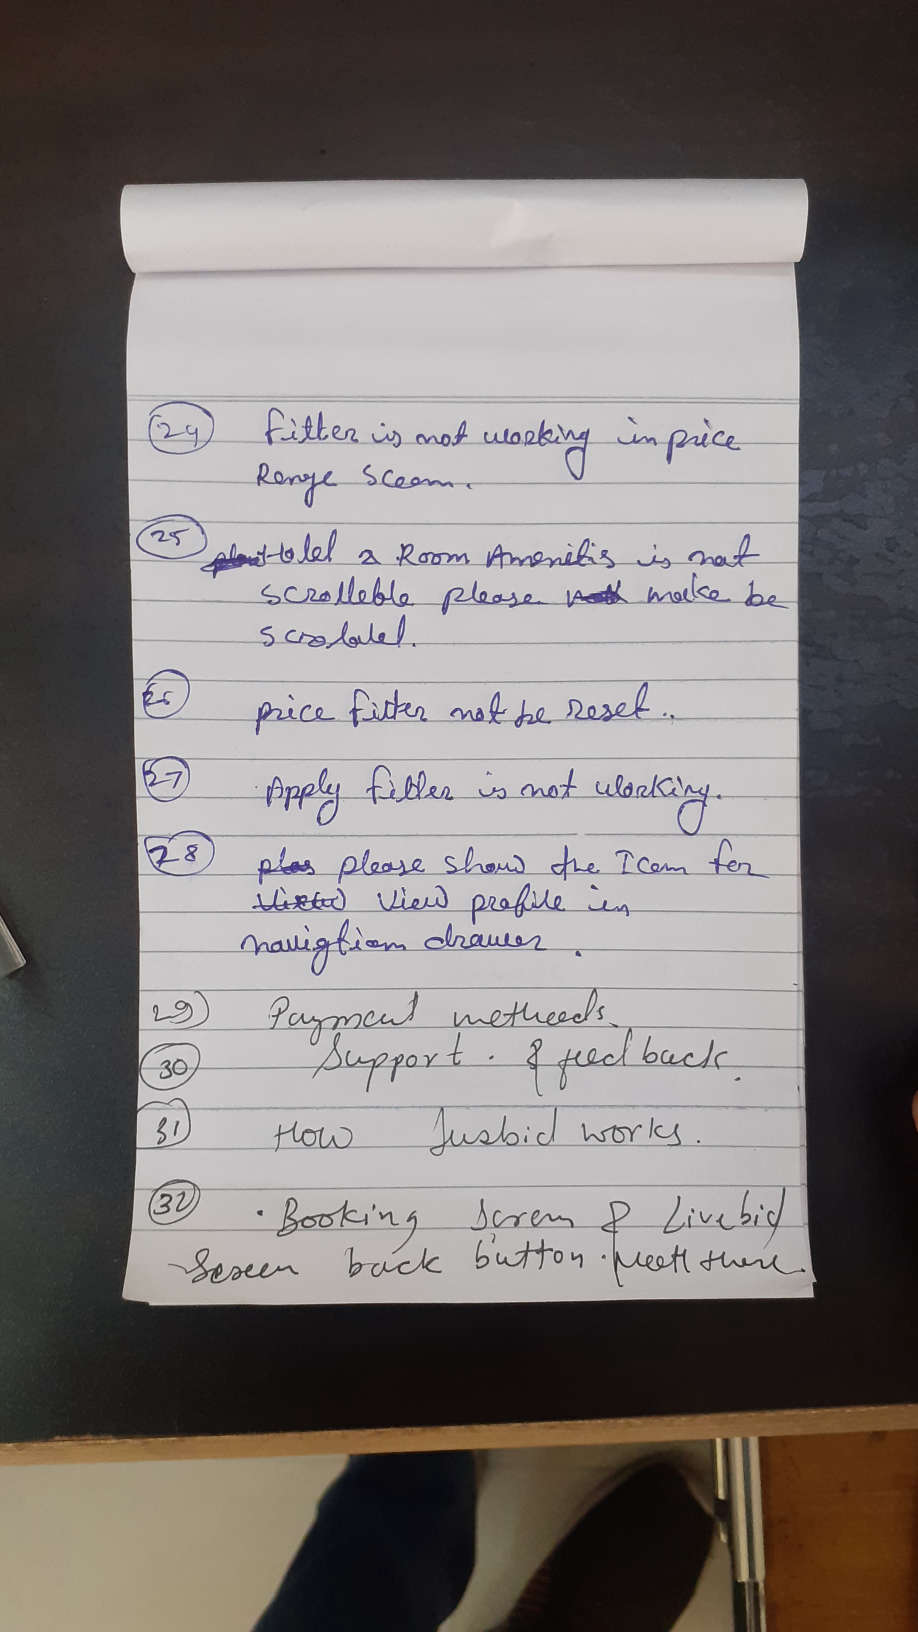 24 Filter is not working in price
Range Sceen.
25 Hotel 2 Room Amenitis is not
scrolleble please make be
scrolabel.
26 price filter not be reset..
27 Apply filter is not working.
28 please show the Icon for
view profile in
navigtion drawer.
29) Payment metheods.
30 Support. & feedback.
31 How Jusbid works.
32 • Booking Screen & Livebid
Screen back button. not there.